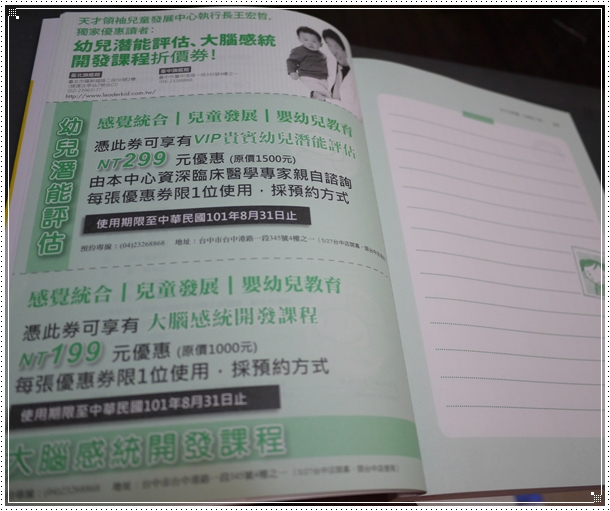 天才領袖兒童發展中心執行長王宏哲,
獨家優惠讀者:
幼兒潛能評估、大腦感統
開發課程折價券!
http://www.leaderkid.com.tw/
幼兒潛能評估
感覺統合|兒童發展|嬰幼兒教育
憑此券可享有VIP貴賓幼兒潛能評估
NT299 元優惠 (原價1500元)
由本中心資深臨床醫學專家親自諮詢
每張優惠券限1位使用,採預約方式
使用期限至中華民國101年8月31日止
預約專線:(04)23268868 地址:台中市台中港路一段345號4樓之一
感覺統合|兒童發展|嬰幼兒教育
憑此券可享有 大腦感統開發課程
NT199 元優惠 (原價1000元)
每張優惠券限1位使用,採預約方式
使用期限至中華民國101年8月31日止
大腦感統開發課程
專線:(04)23268868 地址:台中市台中港路一段345號4樓之一